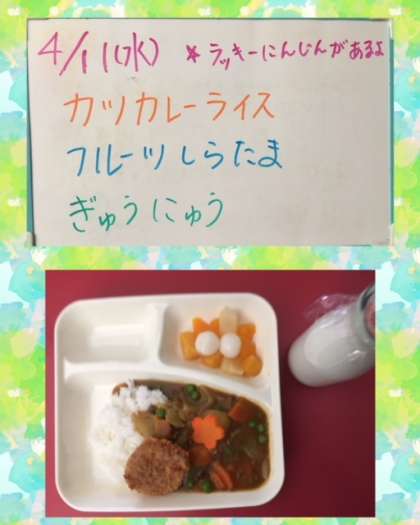 4/11(水) *ラッキーにんじんがあるよ
カツカレーライス
フルーツしらたま
ぎゅうにゅう